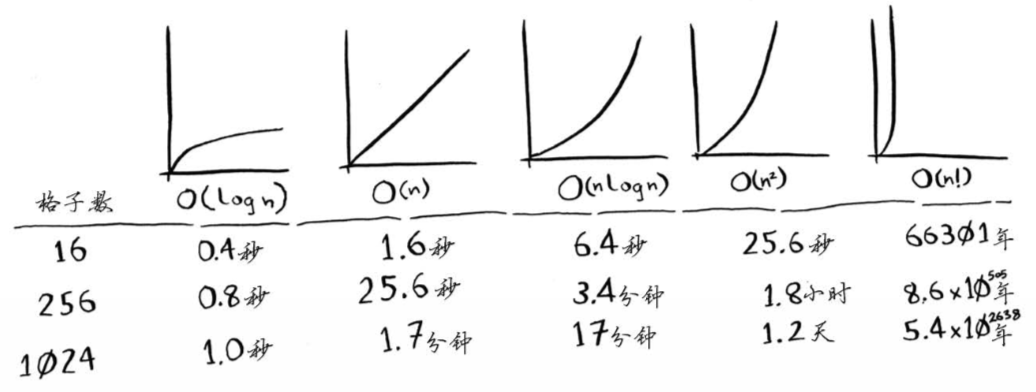 格子数 O(logn) O(n) O(nlogn) O(n²) O(n!)
16 0.4秒 1.6秒 6.4秒 25.6秒 66301年
256 0.8秒 25.6秒 3.4分钟 1.8小时 8.6x10⁵⁰⁵年
1024 1.0秒 1.7分钟 17分钟 1.2天 5.4x10²⁶³⁸年